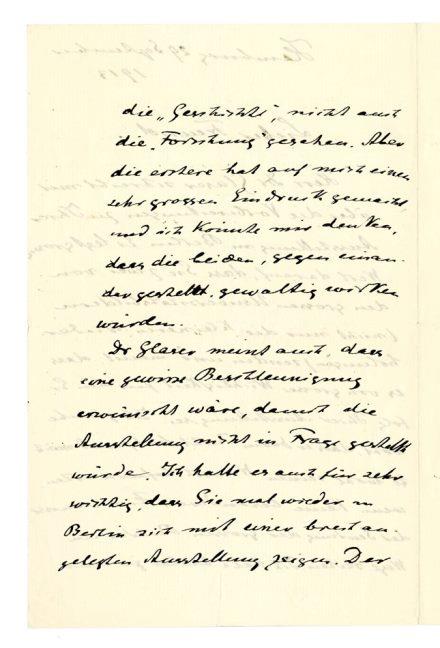 die „Geschichte", nicht auch
die „Forschung" gesehen. Aber
die erstere hat auf mich einen
sehr grossen Eindruck gemacht
und ich könnte mir denken,
dass die beiden, gegen einan-
der gestellt, gewaltig wirken
würden.
Dr Glaser meint auch, dass
eine gewisse Beschleunigung
erwünscht wäre, damit die
Ausstellung nicht in Frage gestellt
würde. Ich halte es auch für sehr
wichtig, dass Sie mal wieder in
Berlin sich mit einer breit an-
gelegten Ausstellung zeigen. Der